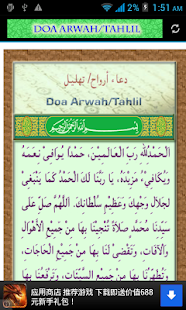 1:51 AM
DOA ARWAH/TAHLIL
دعاء أرواح/ تهليل
Doa Arwah/Tahlil
بسم الله الرحمن الرحيم
الْحَمْدُ لِلَّهِ رَبِّ الْعَالَمِينَ، حَمْدًا يُوَافِي نِعَمَهُ
وَيُكَافِئُ مَزِيدَهُ، يَا رَبَّنَا لَكَ الْحَمْدُ كَمَا يَنْبَغِي
لِجَلَالِ وَجْهِكَ وَعَظِيمِ سُلْطَانِكَ.
اللَّهُمَّ صَلِّ
صَلَاةً تُنْجِينَا بِهَا مِنْ جَمِيعِ الْأَهْوَالِ
وَالْآفَاتِ، وَتَقْضِي لَنَا بِهَا مِنْ جَمِيعِ الْحَاجَاتِ،
وَتُطَهِّرُنَا بِهَا مِنْ جَمِيعِ السَّيِّئَاتِ، وَتَرْفَعُنَا بِهَا
应用商店 推荐游戏 下载即送价值688
元新手礼包！